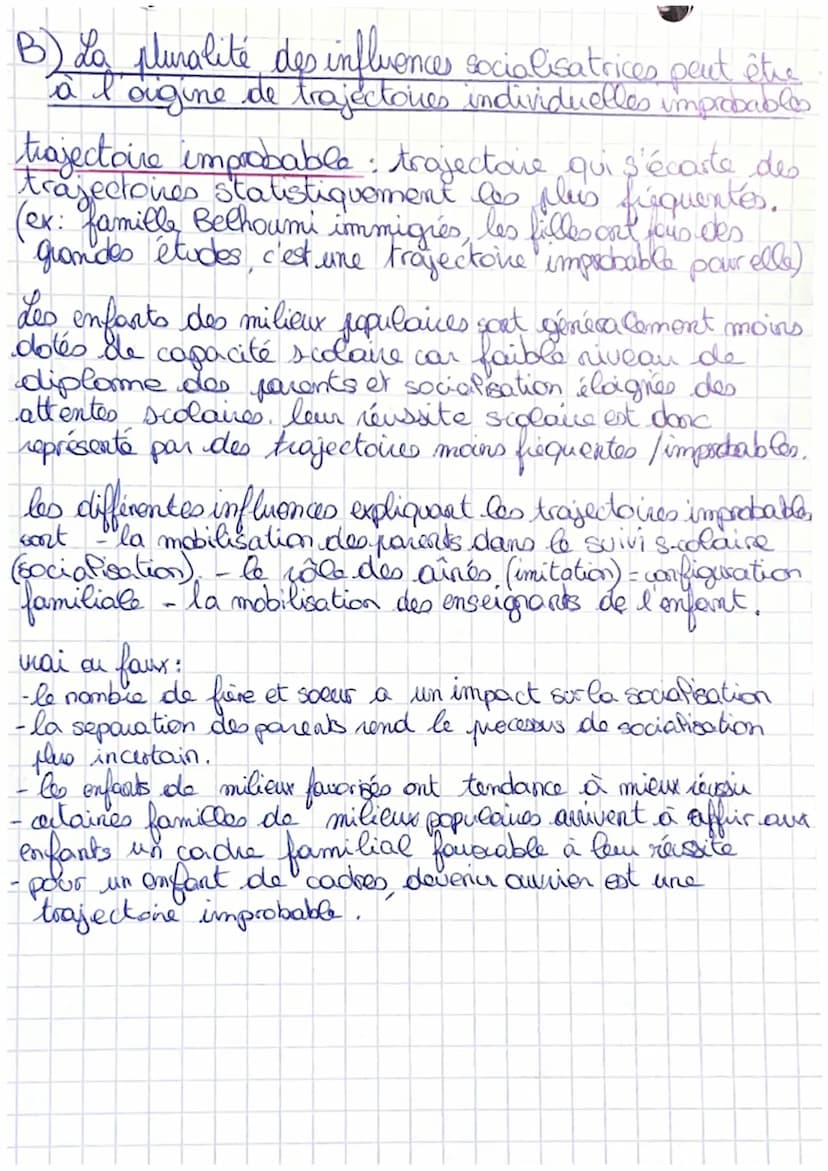 B) La pluralité des influences socialisatrices peut être
à l'origine de trajectoires individuelles improbables
trajectoire improbable : trajectoire qui s'écarte des
trajectoires statistiquement les plus fréquentes.
(ex: famille Belhoumi immigrés, les filles ont fais des
grandes études, c'est une trajectoire improbable pour elle)
Les enfants des milieux populaires sont généralement moins
dotés de capacité scolaire car faible niveau de
diplome des parents et socialisation éloignée des
attentes scolaires. leur réussite scolaire est donc
représenté par des trajectoires moins fréquentes / improbables.
les différentes influences expliquant les trajectoires improbables
sont - la mobilisation des parents dans le suivi scolaire
(socialisation). - le rôle des aînés (imitation) = configuration
familiale - la mobilisation des enseignants de l'enfant.
vrai ou faux :
- le nombre de frère et soeur a un impact sur la socialisation
- la separation des parents rend le processus de socialisation
plus incertain.
- les enfants de milieux favorisés ont tendance à mieux réussir
- certaines familles de milieux populaires arrivent à offrir aux
enfants un cadre familial favorable à leur réussite
- pour un enfant de cadres, devenir ouvrier est une
trajectoire improbable.